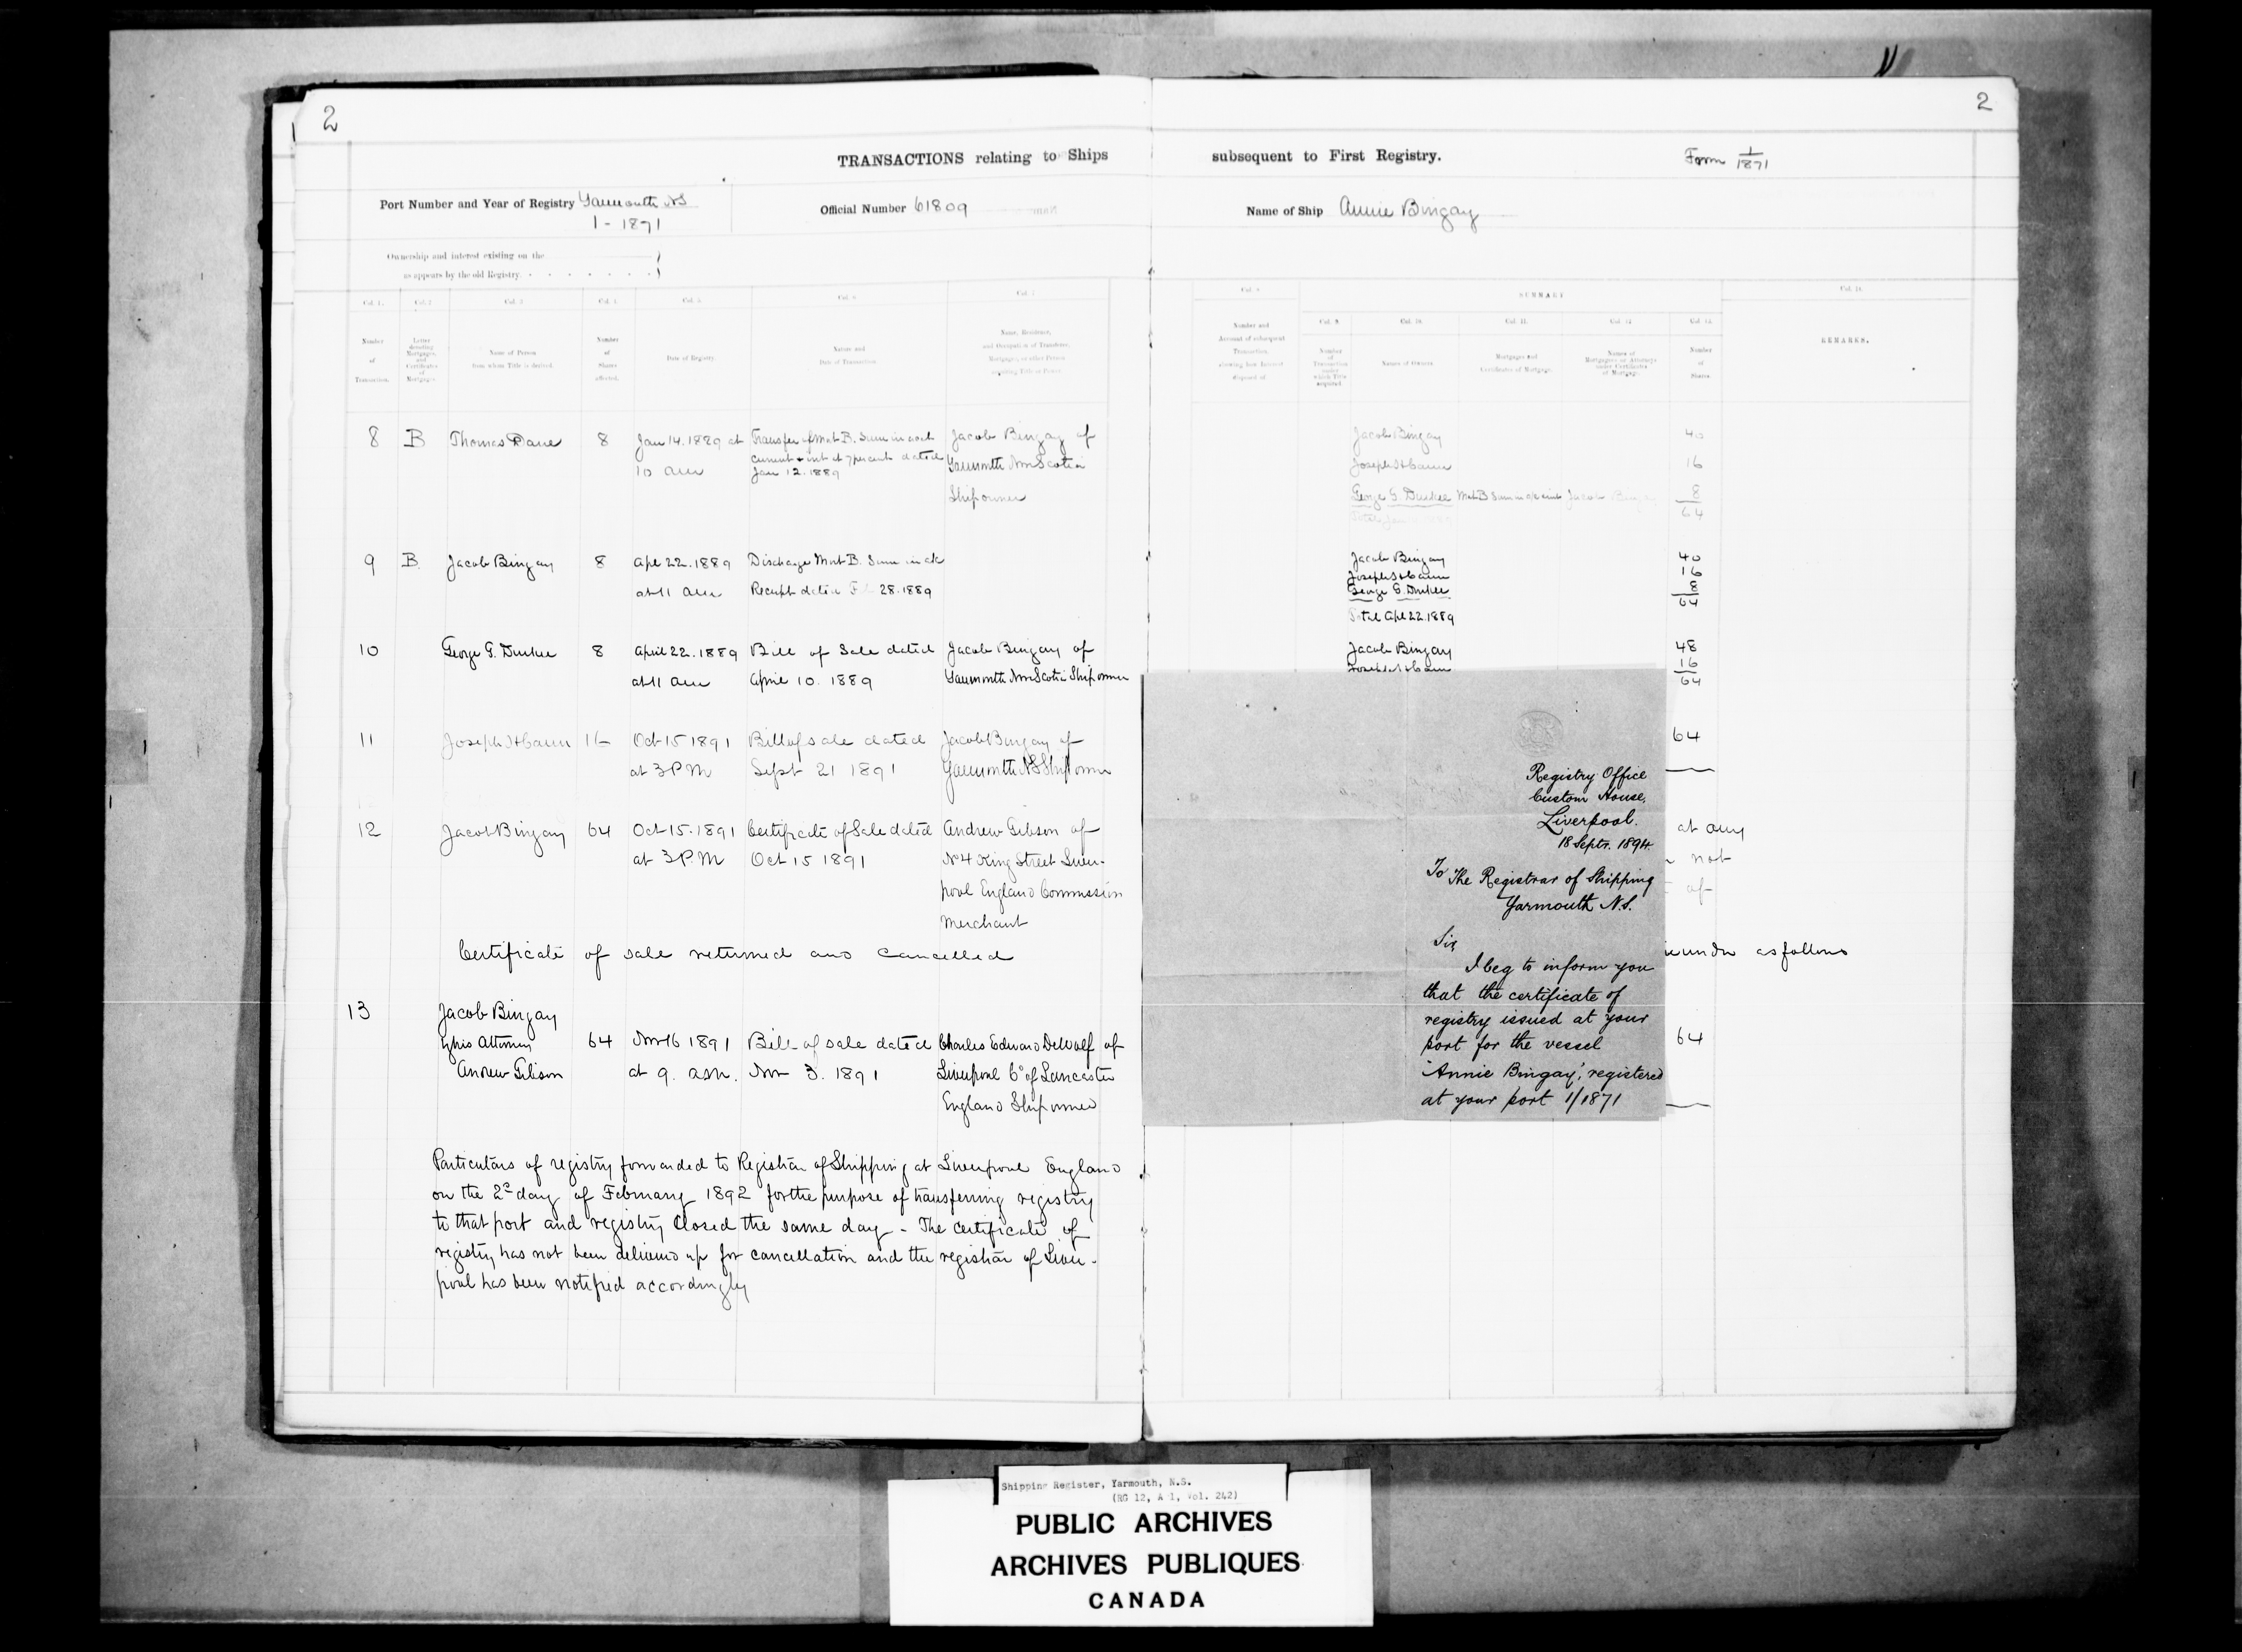 2
2
TRANSACTIONS relating to Ships subsequent to First Registry.
Form 1/1871
Port Number and Year of Registry Yarmouth NS
1 - 1871
Official Number 61809
Name of Ship Annie Bingay
Ownership and interest existing on the
as appears by the old Registry.
Col. 1. Col. 2 Col. 3 Col. 4. Col. 5. Col. 6 Col. 7
Number
of
Transaction.
Letter
denoting
Mortgages,
and
Certificates
of
Mortgages.
Name of Person
from whom Title is derived.
Number
of
Shares
affected.
Date of Registry.
Nature and
Date of Transaction.
Name, Residence,
and Occupation of Transferee,
Mortgagee, or other Person
acquiring Title or Power.
Col. 8
Number and
Account of subsequent
Transaction,
showing how Interest
disposed of
SUMMARY
Col. 9. Col. 10. Col. 11. Col. 12 Col. 13.
Number
of
Transaction
under
which Title
acquired.
Names of Owners
Mortgages and
Certificates of Mortgage.
Names of
Mortgagees or Attorneys
under Certificates
of Mortgage.
Number
of
Shares.
REMARKS.
8 B Thomas 8 Jan 14. 1889 at Transfer of Mort B. Sum in acct Jacob Bingay of
10 am current & int at 7 per cent dated Yarmouth Nova Scotia
Jan 12. 1889 Shipowner
Jacob Bingay 40
Joseph H Cann 16
George G. Durkee Mort B Jacob 8
64
9 B Jacob Bingay 8 Apl 22. 1889 Discharge Mort B. Sum in
at 11 am Receipt dated 28. 1889
Jacob Bingay 40
Joseph H Cann 16
George G. Durkee 8
64
Total Apl 22. 1889
10 George G. Durkee 8 April 22. 1889 Bill of Sale dated Jacob Bingay of
at 11 am April 10. 1889 Yarmouth Nova Scotia Shipowner
Jacob Bingay 48
Joseph H Cann 16
64
11 Joseph H Cann 16 Oct 15 1891 Bill of sale dated Jacob Bingay of
at 3 PM Sept 21 1891 Yarmouth NS Shipowner
64
12 Jacob Bingay 64 Oct 15. 1891 Certificate of Sale dated Andrew Gibson of
at 3 P.M Oct 15 1891 No 4 King Street Liver-
pool England Commission
Merchant
at any
not
of
Certificate of sale returned and cancelled
as follows
13 Jacob Bingay
by his Attorney 64 Nov 16 1891 Bill of sale dated Charles Edward DeWolf of
Andrew Gibson at 9. a.m. Nov 3. 1891 Liverpool Co of Lancaster
England Shipowner
64
Particulars of registry forwarded to Registrar of Shipping at Liverpool England
on the 2d day of February 1892 for the purpose of transferring registry
to that port and registry closed the same day - The certificate of
registry has not been delivered up for cancellation and the registrar of Liver-
pool has been notified accordingly
Registry Office
Custom House,
Liverpool.
18 Septr. 1894.
To The Registrar of Shipping
Yarmouth N.S.
Sir,
I beg to inform you
that the certificate of
registry issued at your
port for the vessel
'Annie Bingay', registered
at your port 1/1871
Shipping Register, Yarmouth, N.S.
(RG 12, A 1, Vol. 242)
PUBLIC ARCHIVES
ARCHIVES PUBLIQUES
CANADA